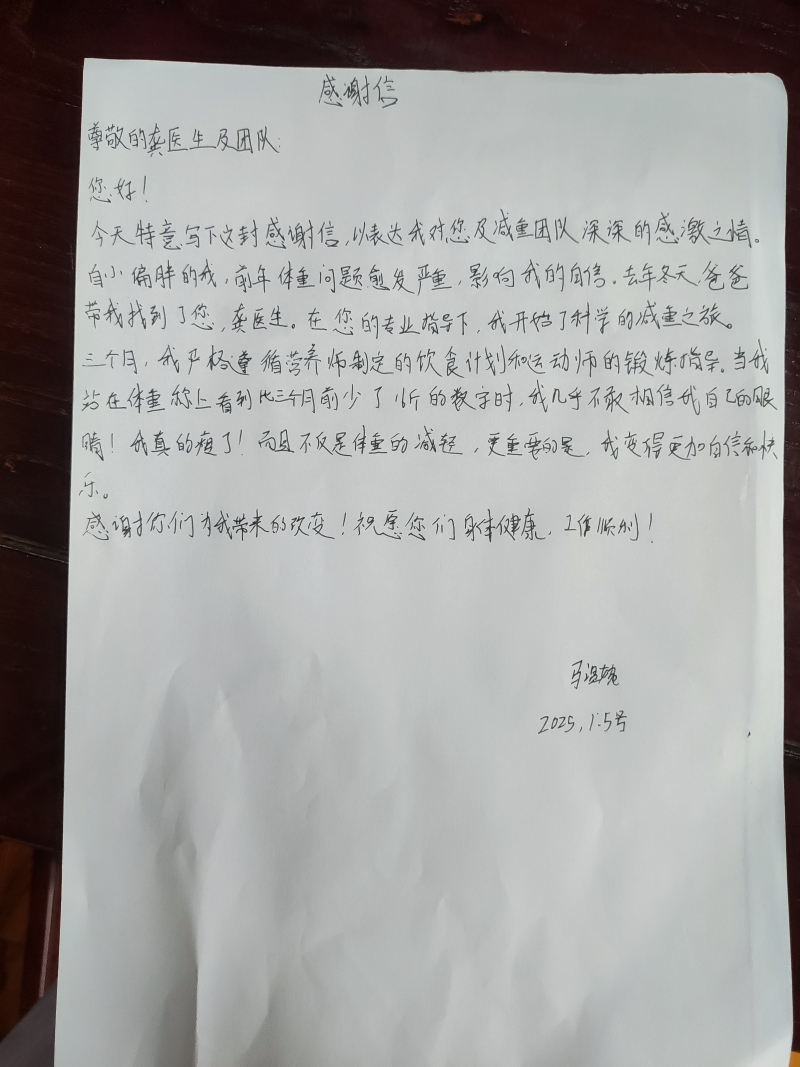 感谢信
尊敬的龚医生及团队:
您好!
今天特意写下这封感谢信,以表达我对您及减重团队深深的感激之情。
自小偏胖的我,前年体重问题愈发严重,影响我的自信。去年冬天,爸爸
带我找到了您,龚医生。在您的专业指导下,我开始了科学的减重之旅。
三个月,我严格遵循营养师制定的饮食计划和运动师的锻炼指导。当我
站在体重称上看到比三个月前少了16斤的数字时,我几乎不敢相信我自己的眼
睛!我真的瘦了!而且不仅是体重的减轻,更重要的是,我变得更加自信和快
乐。
感谢你们为我带来的改变!祝愿您们身体健康,工作顺利!
马
2025,1.5号